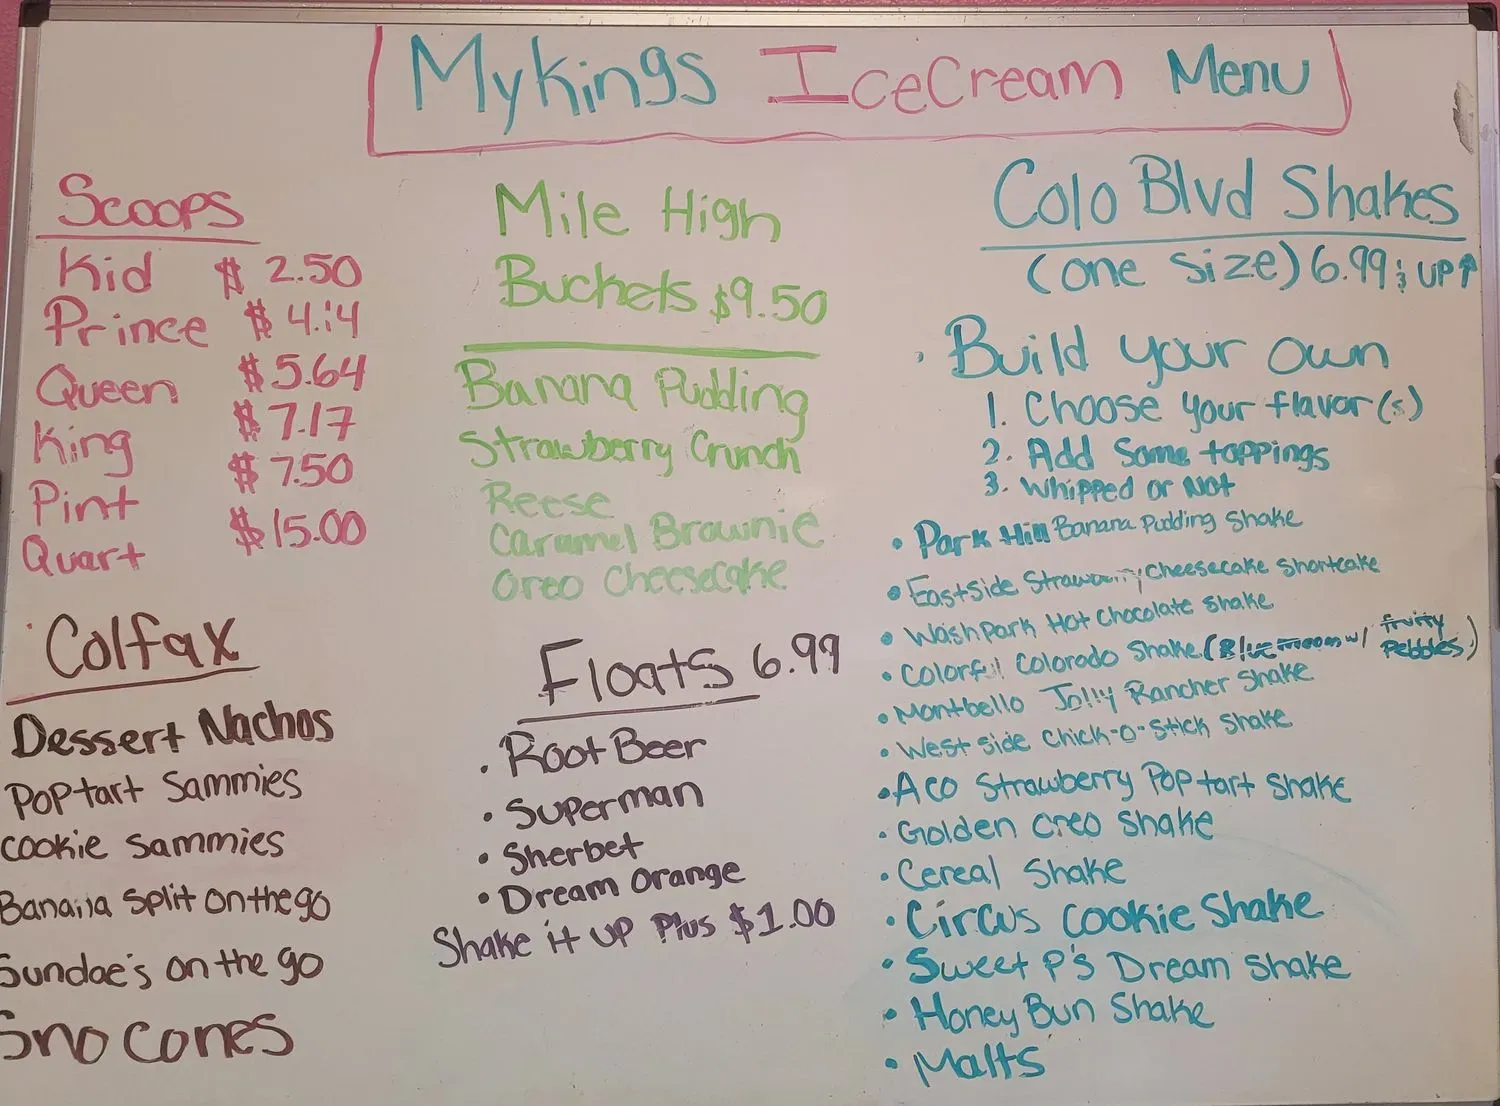 Mykings IceCream Menu
Scoops
Kid $ 2.50
Prince $ 4.14
Queen $5.64
King $7.17
Pint $7.50
Quart $15.00
Colfax
Dessert Nachos
Poptart Sammies
Cookie Sammies
Banana Split on the go
Sundae's on the go
Sno Cones
Mile High
Buckets $9.50
Banana Pudding
Strawberry Crunch
Reese
Caramel Brownie
Oreo Cheesecake
Floats 6.99
• Root Beer
• Superman
• Sherbet
• Dream Orange
Shake it up Plus $1.00
Colo Blvd Shakes
(one size) 6.99 & UP↑
• Build your own
1. Choose your flavor(s)
2. Add Some toppings
3. Whipped or Not
• Park Hill Banana Pudding Shake
• Eastside Strawberry Cheesecake Shortcake
• Wash Park Hot Chocolate Shake
• Colorful Colorado Shake (Blue moon w/ fruity Pebbles)
• Montbello Jolly Rancher Shake
• West side Chick-O-Stick Shake
• Aco Strawberry Poptart Shake
• Golden Oreo Shake
• Cereal Shake
• Circus Cookie Shake
• Sweet P's Dream Shake
• Honey Bun Shake
• Malts